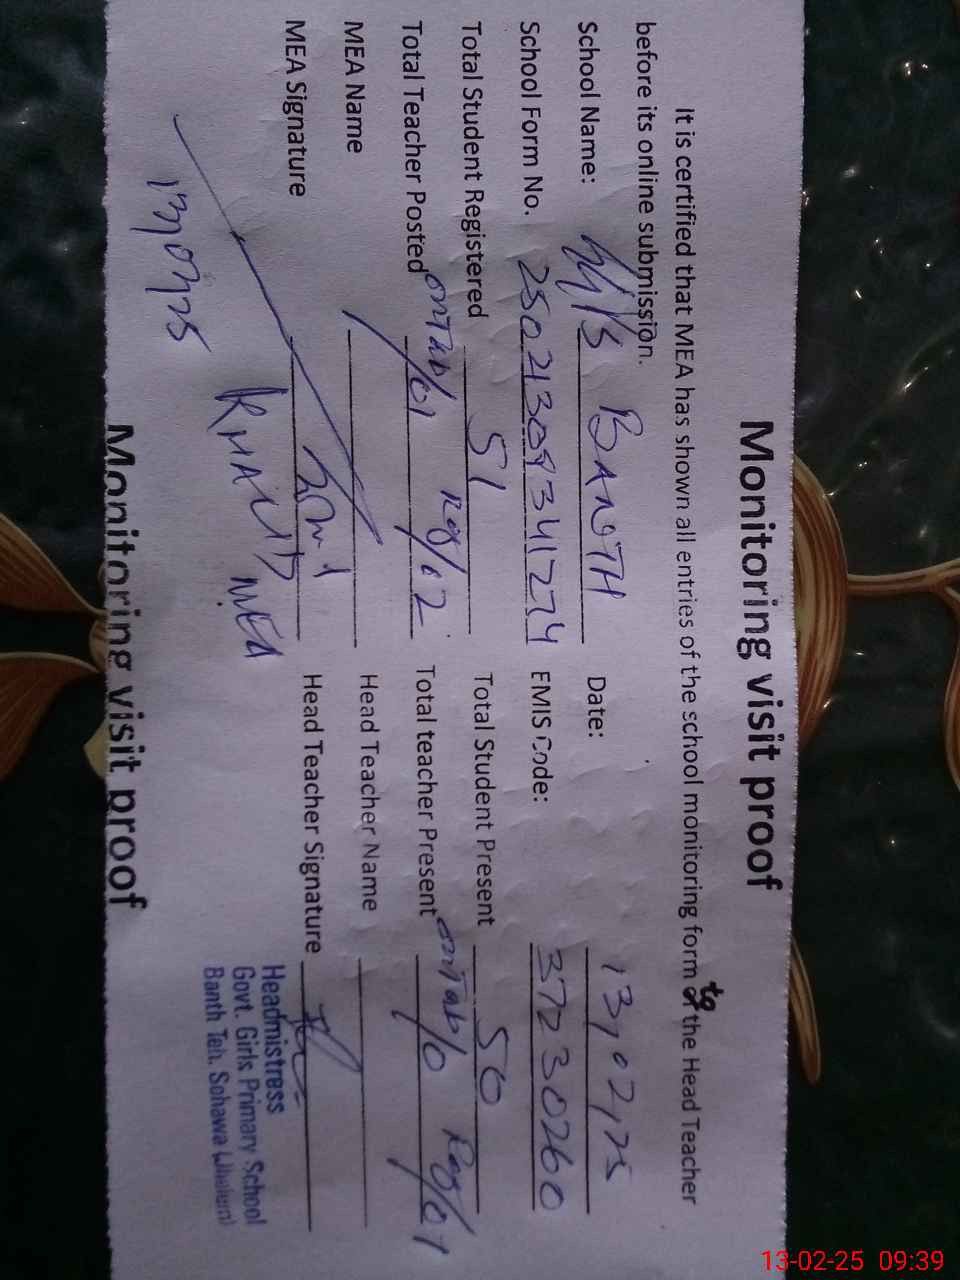 Monitoring visit proof
It is certified that MEA has shown all entries of the school monitoring form to the Head Teacher
before its online submission.
School Name: G/P/S BANTH Date: 13/02/25
School Form No. 25021309341274 EMIS Code: 37230260
Total Student Registered 51 Total Student Present 50
Total Teacher Posted on Tab/01 Reg/02 Total teacher Present on Tab/0 Reg/01
MEA Name Head Teacher Name
MEA Signature Head Teacher Signature
KHALID MEA
13/02/25
Headmistress
Govt. Girls Primary School
Banth Teh. Sohawa (Jhelum)
Monitoring visit proof
13-02-25 09:39